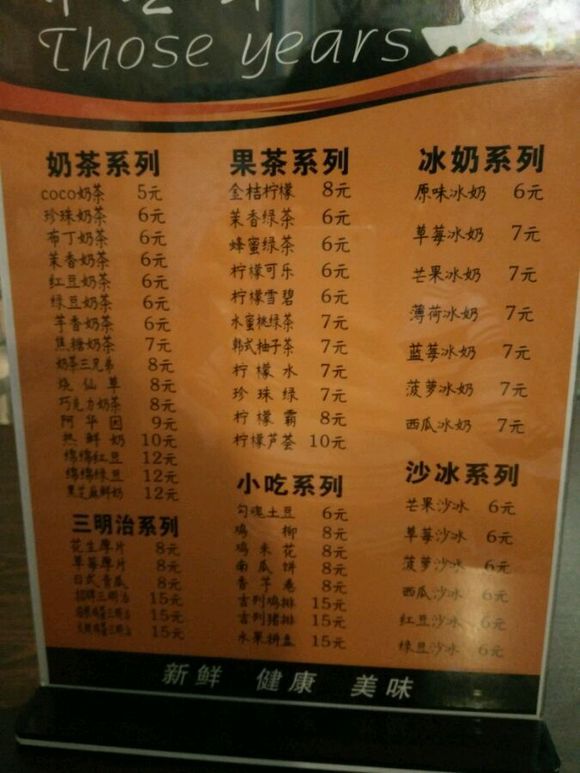 Those years
奶茶系列
coco奶茶 5元
珍珠奶茶 6元
布丁奶茶 6元
茉香奶茶 6元
红豆奶茶 6元
绿豆奶茶 6元
芋香奶茶 6元
焦糖奶茶 7元
奶茶三兄弟 8元
烧仙草 8元
巧克力奶茶 8元
阿华田 9元
热鲜奶 10元
绵绵红豆 12元
绵绵绿豆 12元
黑芝麻鲜奶 12元
三明治系列
花生厚片 8元
草莓厚片 8元
日式青瓜 8元
招牌三明治 15元
三明治 15元
三明治 15元
果茶系列
金桔柠檬 8元
茉香绿茶 6元
蜂蜜绿茶 6元
柠檬可乐 6元
柠檬雪碧 6元
水蜜桃绿茶 7元
韩式柚子茶 7元
柠檬水 7元
珍珠绿 7元
柠檬霸 8元
柠檬芦荟 10元
小吃系列
勾魂土豆 6元
鸡柳 8元
鸡米花 8元
南瓜饼 8元
香芋卷 8元
吉列鸡排 15元
吉列猪排 15元
水果拼盘 15元
冰奶系列
原味冰奶 6元
草莓冰奶 7元
芒果冰奶 7元
薄荷冰奶 7元
蓝莓冰奶 7元
菠萝冰奶 7元
西瓜冰奶 7元
沙冰系列
芒果沙冰 6元
草莓沙冰 6元
菠萝沙冰 6元
西瓜沙冰 6元
红豆沙冰 6元
绿豆沙冰 6元
新鲜 健康 美味